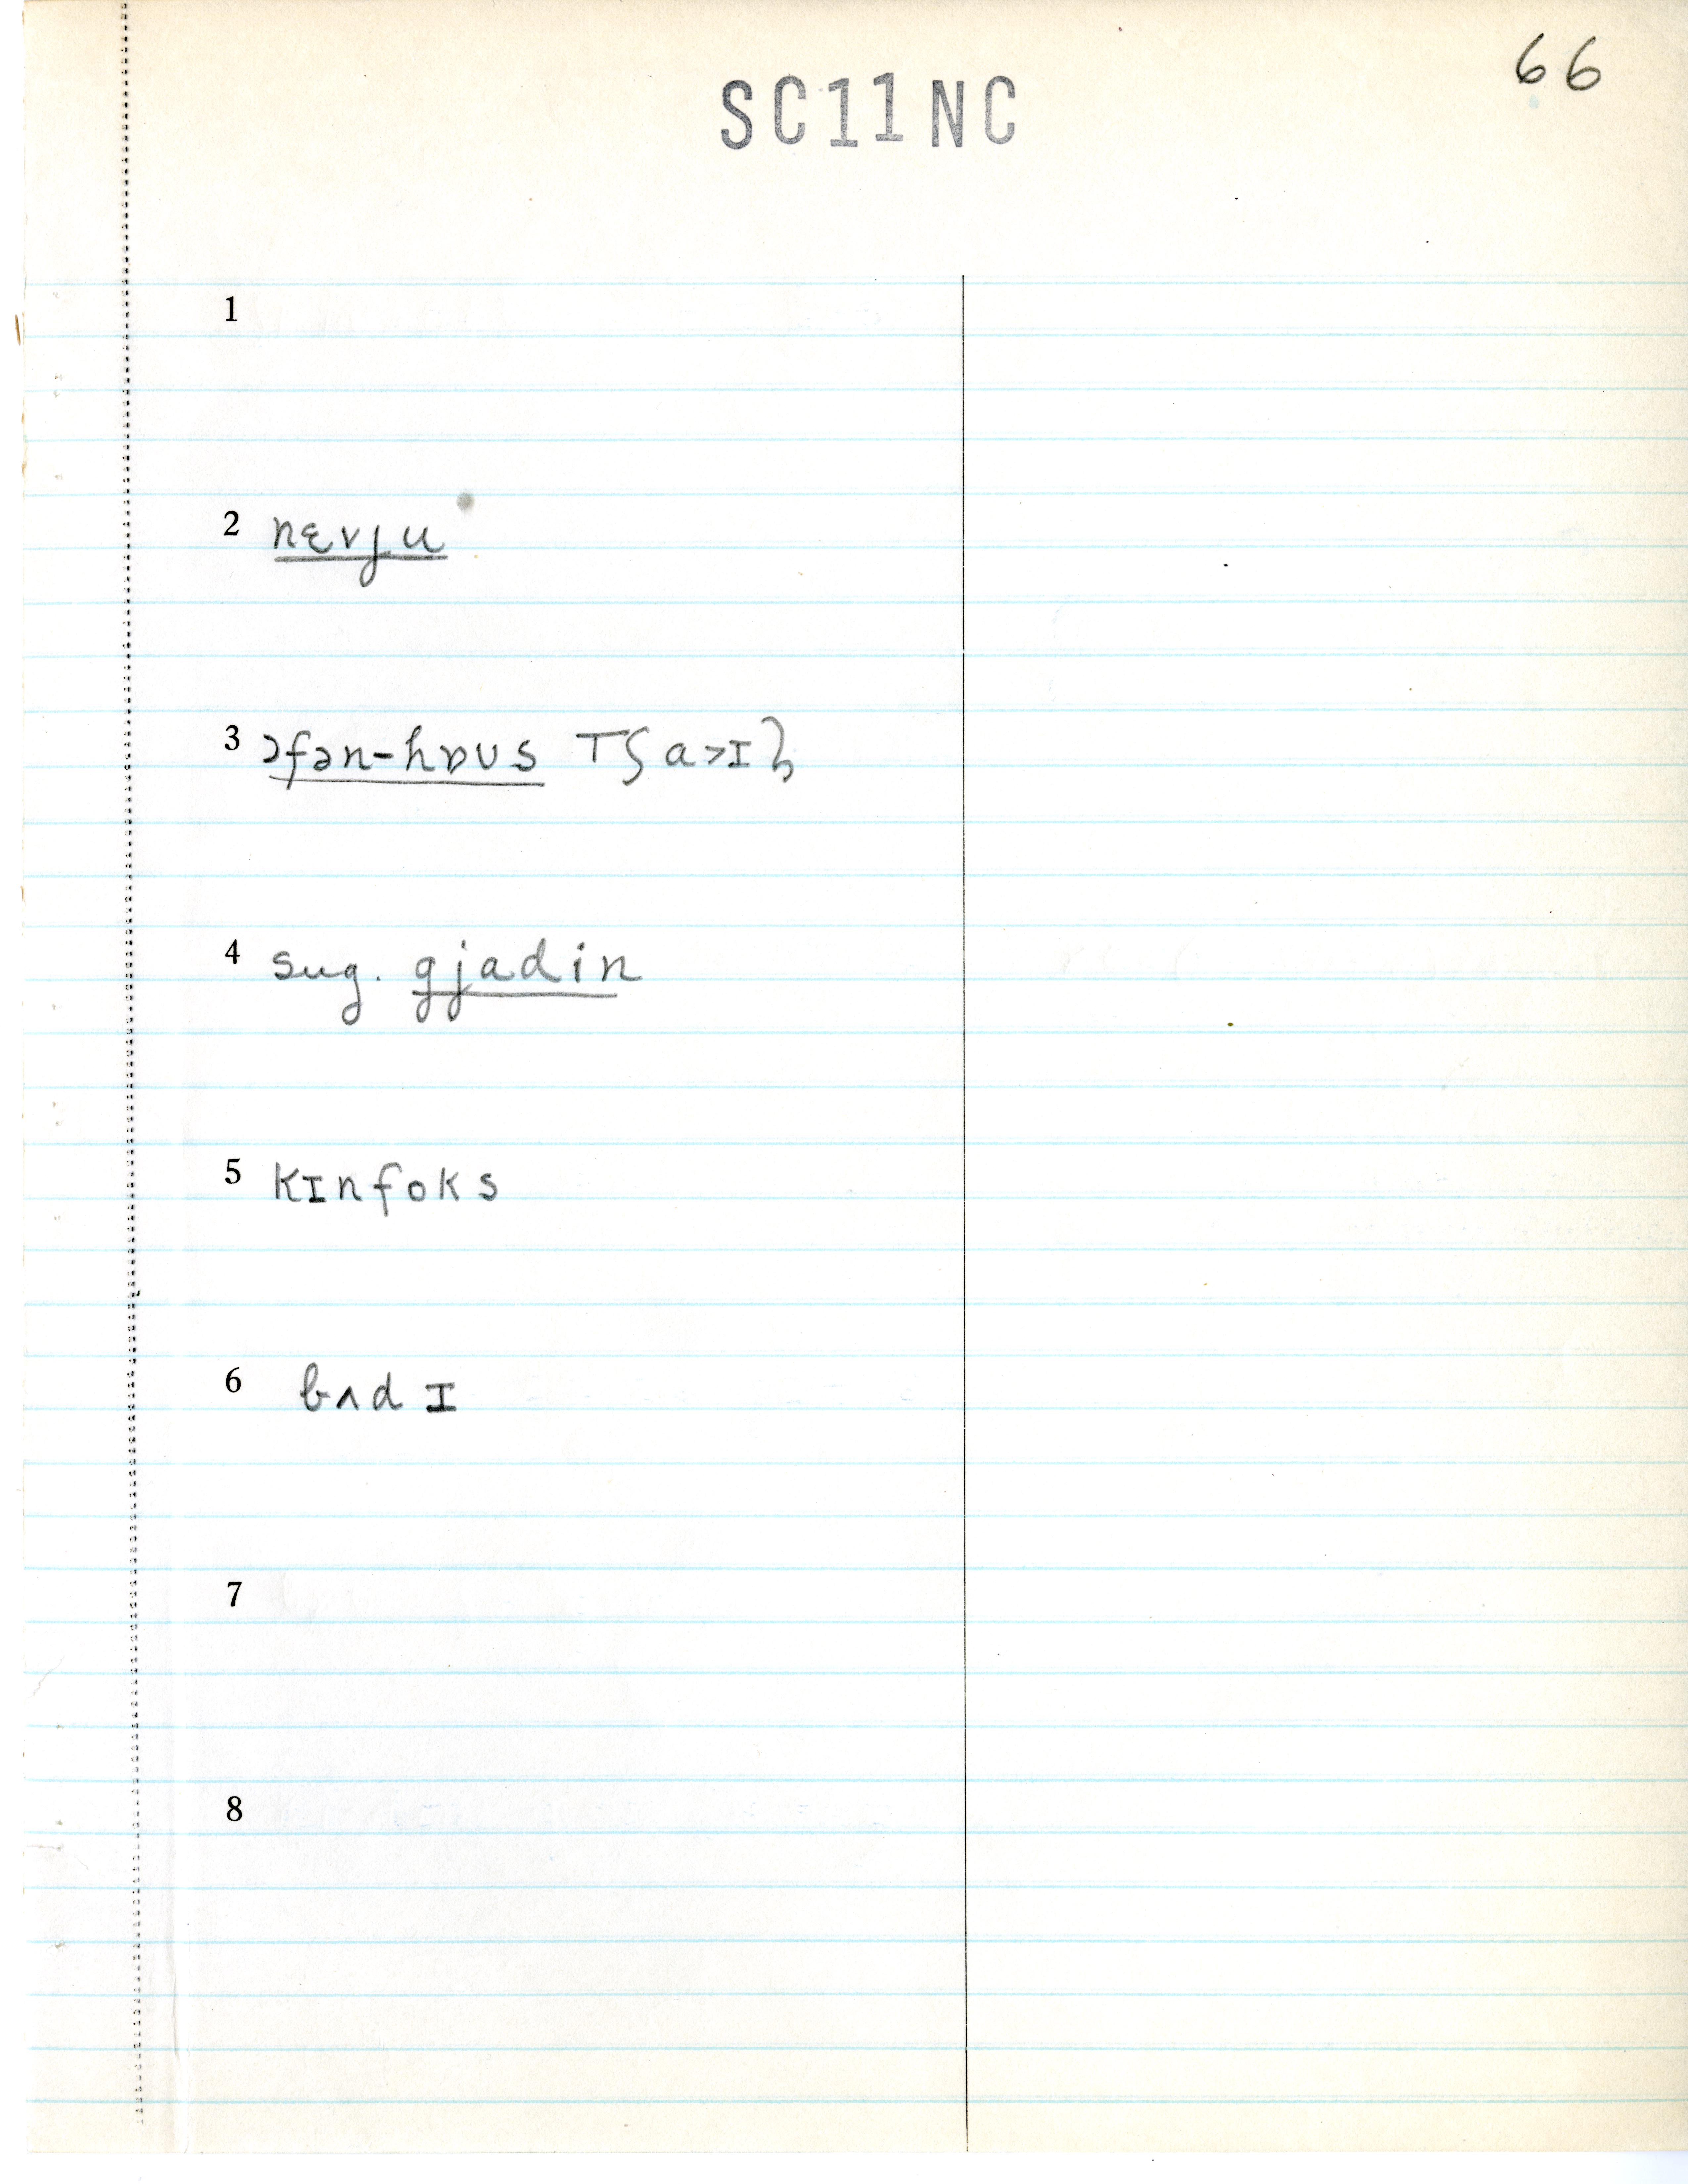 66
SC11NC
1
2 nɛvju
3 ɔfən-hɒus T{a>ɪ}
4 sug. gjadin
5 kɪnfoks
6 bʌdɪ
7
8